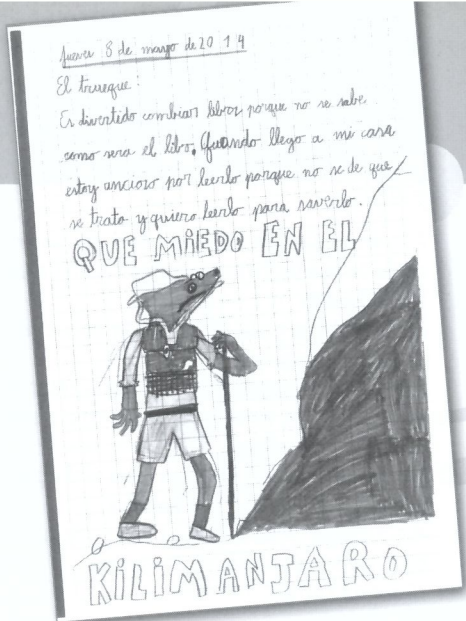 Jueves 8 de mayo de 2014
El trueque:
Es divertido combiar libros porque no se sabe
como sera el libro. Quando llego a mi casa
estoy ancioso por leerlo porque no se de que
se trata y quiero leerlo para saverlo.
QUE MIEDO EN EL
KILIMANJARO